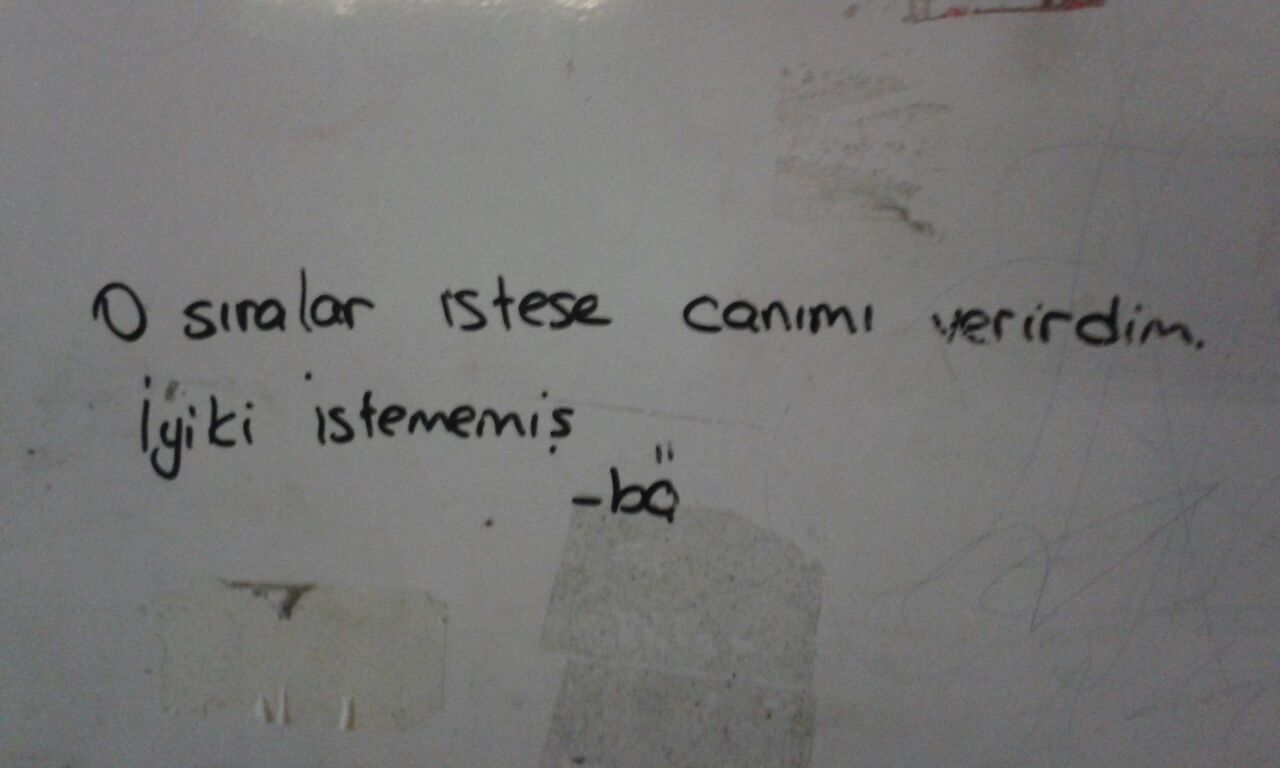 O sıralar istese canımı verirdim.
İyiki istememiş
-bö